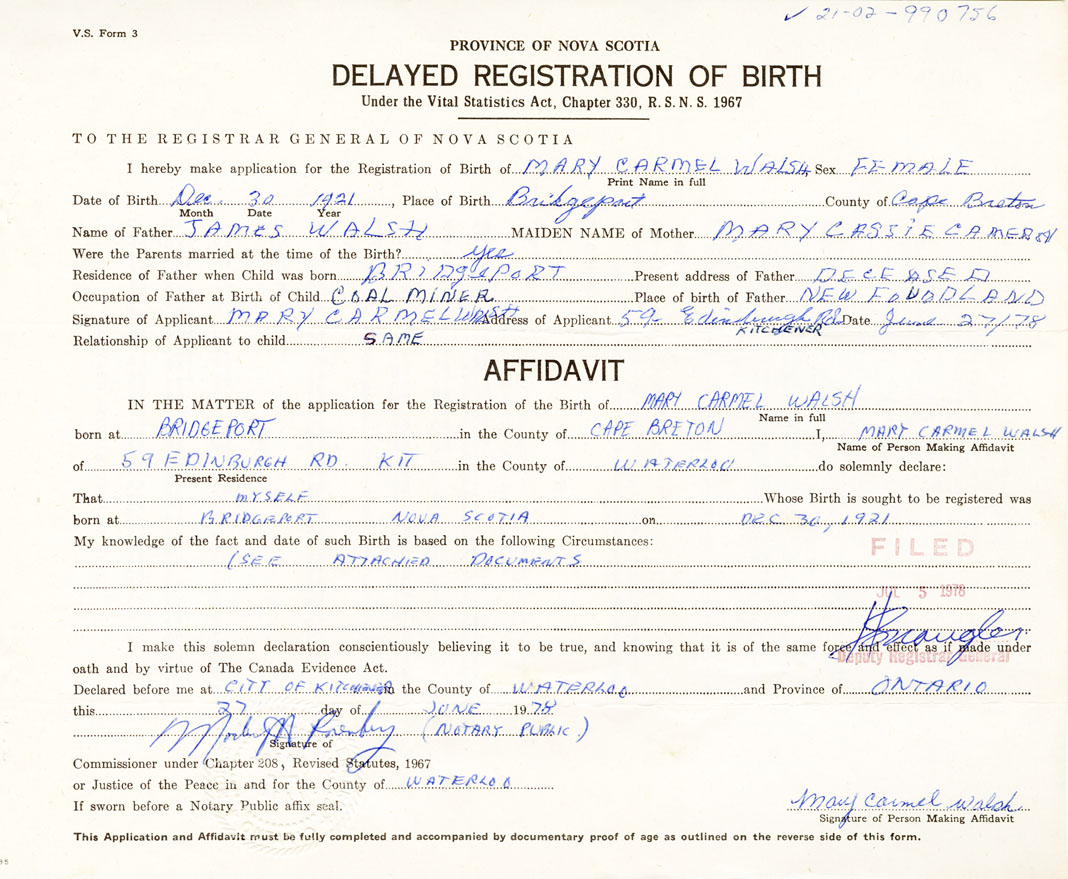 ✓ 21-02-990756
V.S. Form 3
PROVINCE OF NOVA SCOTIA
DELAYED REGISTRATION OF BIRTH
Under the Vital Statistics Act, Chapter 330, R.S.N.S. 1967
TO THE REGISTRAR GENERAL OF NOVA SCOTIA
I hereby make application for the Registration of Birth of MARY CARMEL WALSH Sex FEMALE
Print Name in full
Date of Birth Dec. 30 1921, Place of Birth Bridgeport County of Cape Breton
Month Date Year
Name of Father JAMES WALSH MAIDEN NAME of Mother MARY CASSIE CAMERON
Were the Parents married at the time of the Birth? yes
Residence of Father when Child was born BRIDGEPORT Present address of Father DECEASED
Occupation of Father at Birth of Child COAL MINER Place of birth of Father NEW FOUDLAND
Signature of Applicant MARY CARMEL WALSH Address of Applicant 59- Edinburgh Rd. Date June 27/78
KITCHENER
Relationship of Applicant to child SAME
AFFIDAVIT
IN THE MATTER of the application for the Registration of the Birth of MARY CARMEL WALSH
Name in full
born at BRIDGEPORT in the County of CAPE BRETON I, MARY CARMEL WALSH
Name of Person Making Affidavit
of 59 EDINBURGH RD. KIT in the County of WATERLOO do solemnly declare:
Present Residence
That MYSELF Whose Birth is sought to be registered was
born at BRIDGEPORT NOVA SCOTIA on DEC 30, 1921
My knowledge of the fact and date of such Birth is based on the following Circumstances:
FILED
(SEE ATTACHED DOCUMENTS
JUL 5 1978
I make this solemn declaration conscientiously believing it to be true, and knowing that it is of the same force and effect as if made under
Deputy Registrar General
oath and by virtue of The Canada Evidence Act.
Declared before me at CITY OF KITCHENER in the County of WATERLOO and Province of ONTARIO
this 27 day of JUNE 1978
(NOTARY PUBLIC)
Signature of
Commissioner under Chapter 208, Revised Statutes, 1967
or Justice of the Peace in and for the County of WATERLOO
If sworn before a Notary Public affix seal.
Mary Carmel Walsh
Signature of Person Making Affidavit
This Application and Affidavit must be fully completed and accompanied by documentary proof of age as outlined on the reverse side of this form.